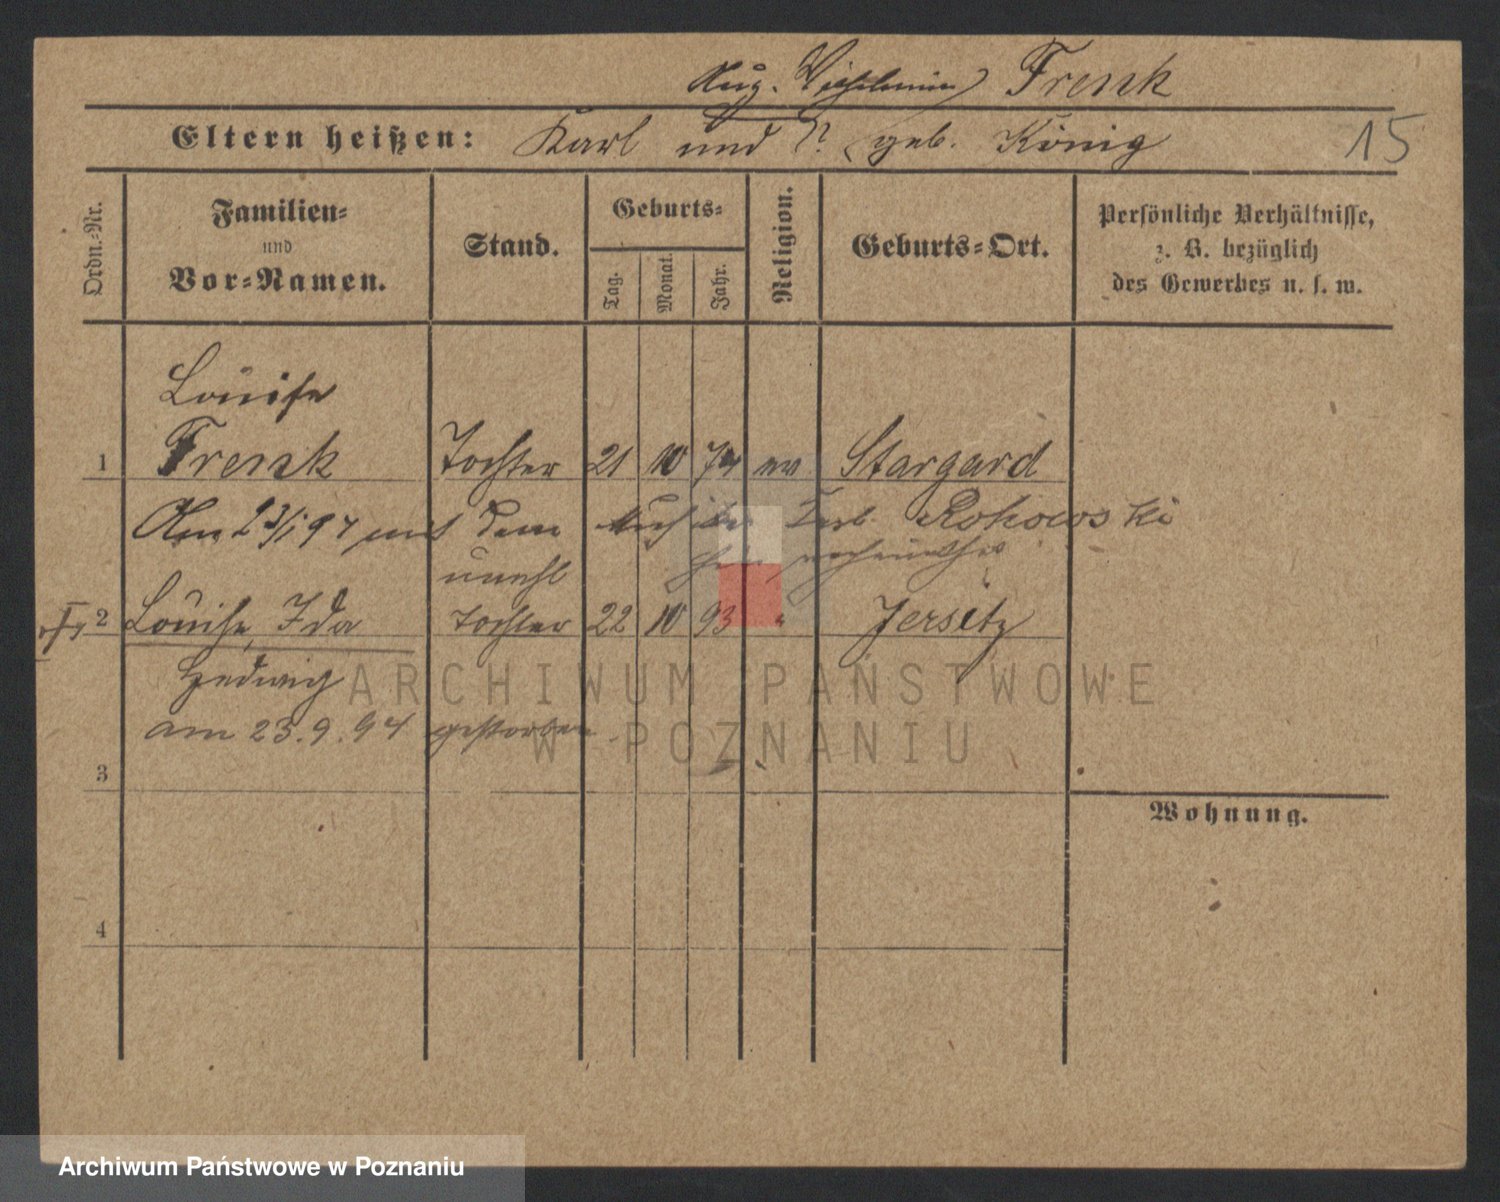 Aug. Wilhelmine Frenk
Eltern heißen: Karl und ? geb. König
15
Ordn.-Nr.
Familien-
und
Vor-Namen.
Stand.
Geburts-
Tag.
Monat.
Jahr.
Religion.
Geburts-Ort.
Persönliche Verhältnisse,
z. B. bezüglich
des Gewerbes u. s. w.
Louise
1 Frenk Tochter 21 10 74 ev Stargard
Am 23/1 97 mit dem Rohowski
unehl
2 Louise, Ida Tochter 22 10 93 " Jersitz
Hedwig
am 23.9.94 gestorben
3
Wohnung.
4
ARCHIWUM PAŃSTWOWE
W POZNANIU
Archiwum Państwowe w Poznaniu